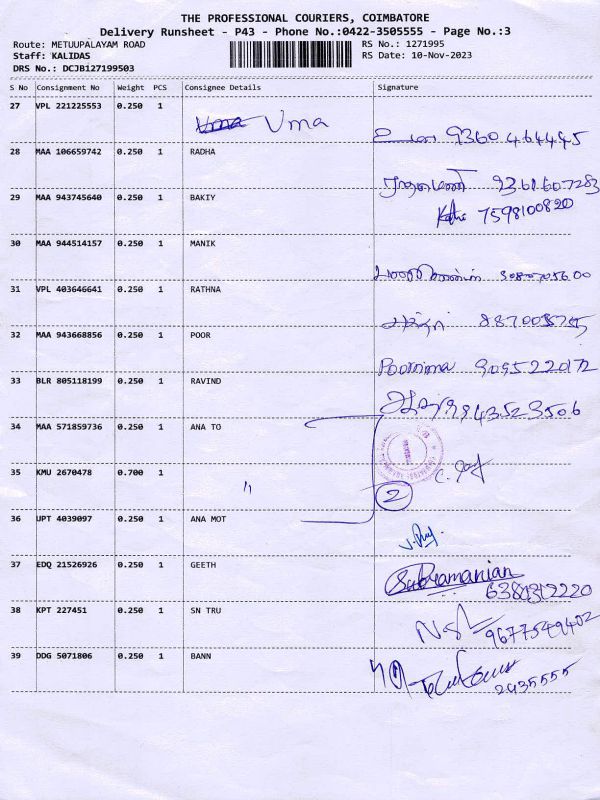 THE PROFESSIONAL COURIERS, COIMBATORE
Delivery Runsheet - P43 - Phone No.:0422-3505555 - Page No.:3
Route: METUUPALAYAM ROAD RS No.: 1271995
Staff: KALIDAS RS Date: 10-Nov-2023
DRS No.: DCJB127199503
S No Consignment No Weight PCS Consignee Details Signature
27 VPL 221225553 0.250 1 Uma உமா 9360464495
28 MAA 106659742 0.250 1 RADHA
29 MAA 943745640 0.250 1 BAKIY 7598100820
30 MAA 944514157 0.250 1 MANIK
31 VPL 403646641 0.250 1 RATHNA
32 MAA 943668856 0.250 1 POOR Poornima 9095222012
33 BLR 805118199 0.250 1 RAVIND 9843523506
34 MAA 571859736 0.250 1 ANA TO
35 KMU 2670478 0.700 1 " 2
36 UPT 4039097 0.250 1 ANA MOT
37 EDQ 21526926 0.250 1 GEETH Subramanian
38 KPT 227451 0.250 1 SN TRU 9677549402
39 DDG 5071806 0.250 1 BANN 2435555